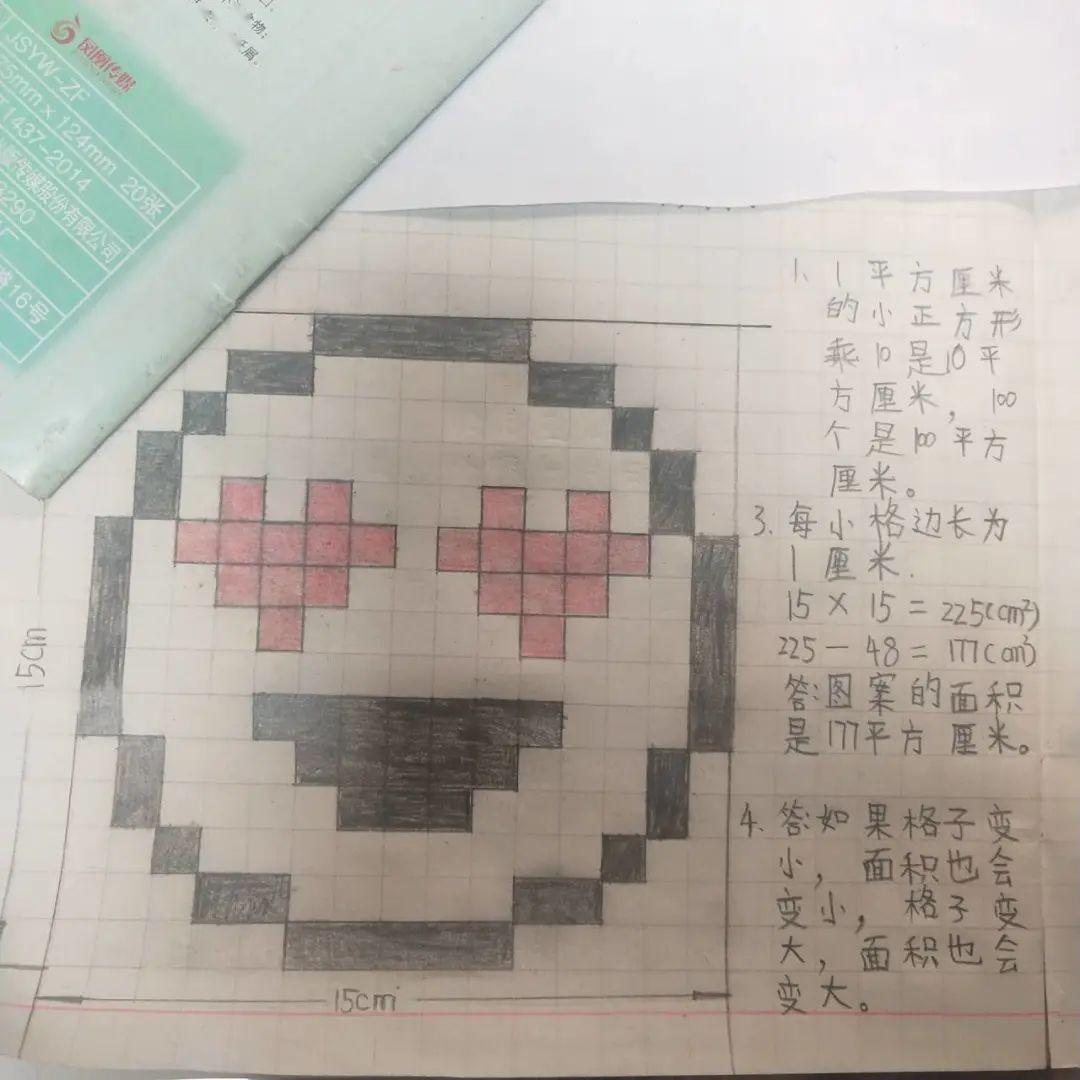 凤凰传媒
JSYW-ZF
75mm×124mm 20张
1437-2014
传媒股份有限公司
8290
厂
路16号
物;
屑。
1、1平方厘米
的小正方形
乘10是10平
方厘米,100
个是100平方
厘米。
3、每小格边长为
1厘米.
15×15=225(cm²)
225-48=177(cm²)
答:图案的面积
是177平方厘米。
4、答:如果格子变
小,面积也会
变小,格子变
大,面积也会
变大。
15cm
15cm